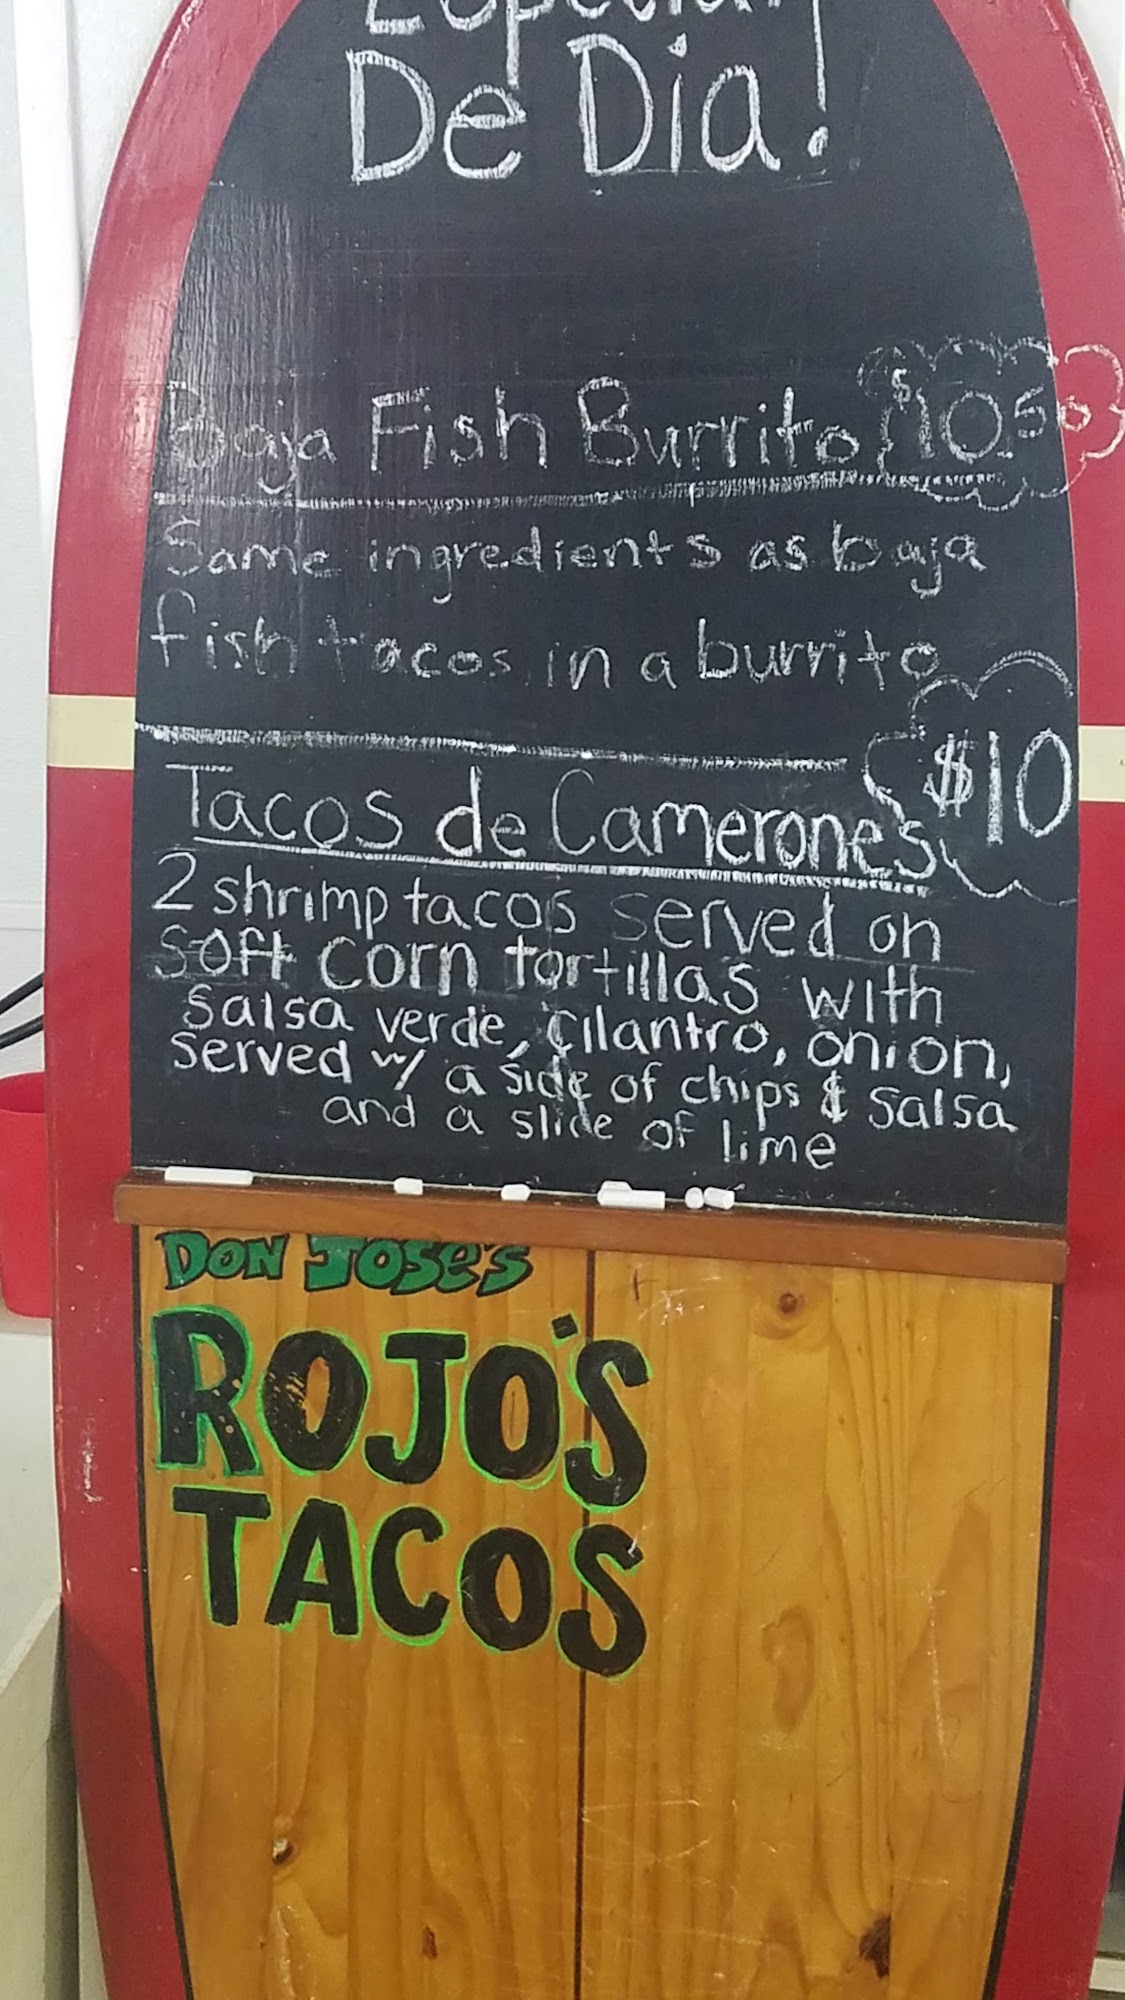 Especial
De Dia!
Baja Fish Burrito $10.50
Same ingredients as baja
fish tacos in a burrito
Tacos de Camerones $10
2 shrimp tacos served on
soft corn tortillas with
salsa verde, cilantro, onion,
served w/ a side of chips & salsa
and a slide of lime
DON JOSE'S
ROJO'S
TACOS